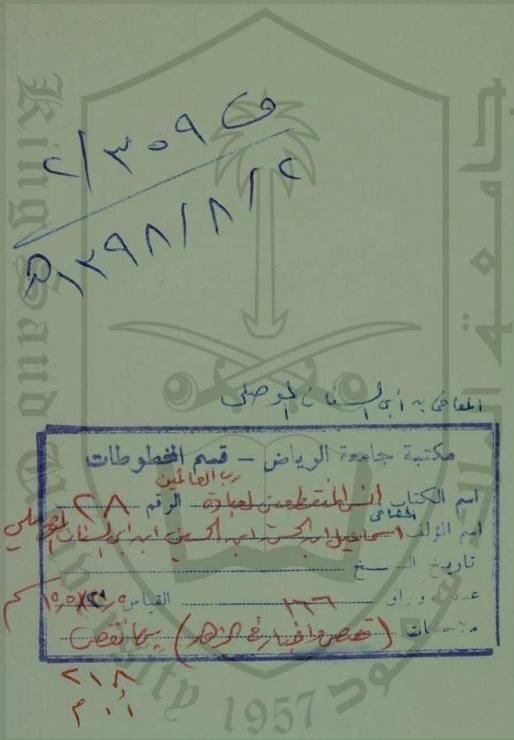 ف ٣٠٩/٢
١٣٩٨/٨/٢ هـ
المعافى بن أبي السنان الموصلي
مكتبة جامعة الرياض - قسم المخطوطات
اسم الكتاب أنس المنقطعين لعبادة رب العالمين الرقم ٢٨
اسم المؤلف المعافى اسماعيل ابن الحسين ابن أبي السنان الموصلي
تاريخ النسخ
عدد الأوراق ١٦٦ القياس سم
ملاحظات (قصص وأخبار في الزهد) بها نقص
٢١٨
أ . م
King Saud University 1957